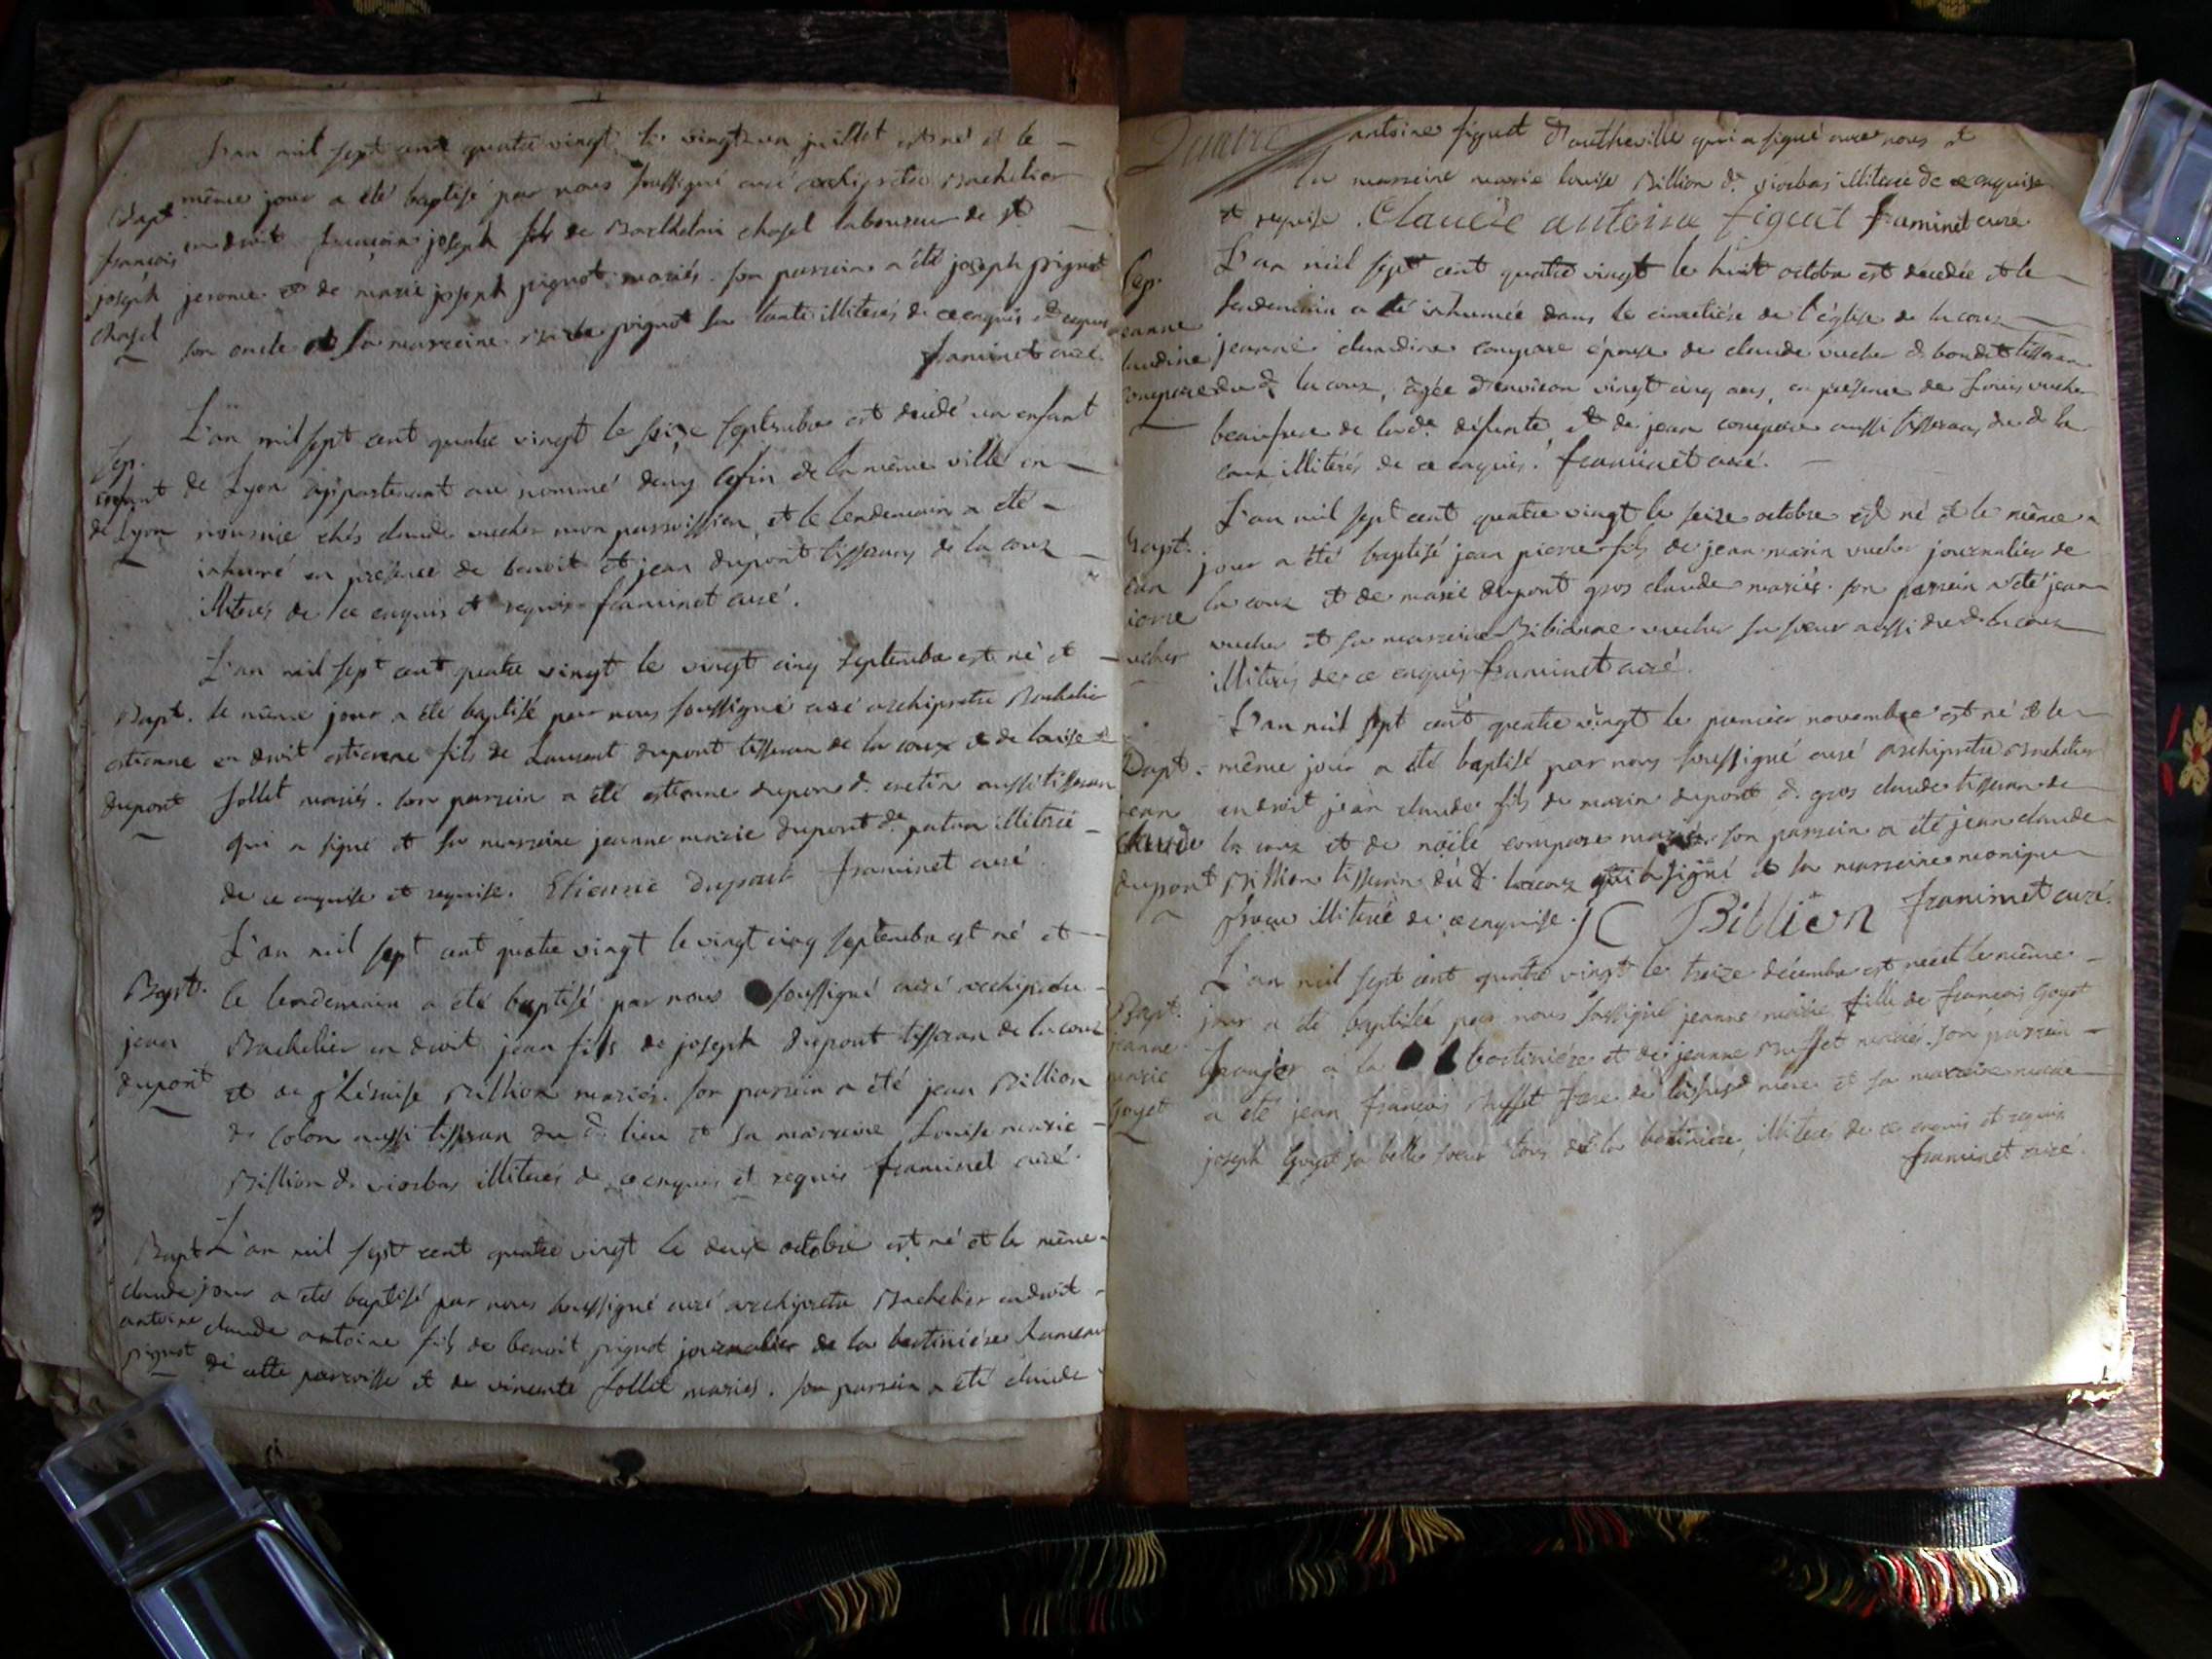 L'an mil sept cent quatre vingt le vingt un juillet est né et le
Bapt. même jour a été baptisé par nous soussigné curé archiprêtre Bachelier
françois en droit françois joseph fils de Barthelmi chapel laboureur de st
joseph jerome et de marie joseph pignot mariés. son parrain a été joseph pignot
chapel son oncle et sa marreine marie pignot sa tante illiterés de ce enquis et requis
framinet curé.
L'an mil sept cent quatre vingt le seize septembre est décédé un enfant
Sep. enfant de Lyon appartenant au nommé deny de la même ville en
de Lyon nourrice chés claude vucher mon parroissien et le lendemain a été
inhumé en présence de benoit et jean dupont tisserans de la coux
illiterés de ce enquis et requis framinet curé.
L'an mil sept cent quatre vingt le vingt cinq septembre est né et
Bapt. le même jour a été baptisé par nous soussigné curé archiprêtre Bachelier
estienne en droit estienne fils de Laurent dupont tisseran de la coux et de louise
dupont follet mariés. son parrain a été estienne dupon d. cretin aussi tisseran
qui a signé et sa marreine jeanne marie dupont de illiterée
de ce enquise et requise. Etienne Dupont framinet curé
L'an mil sept cent quatre vingt le vingt cinq septembre est né et
Bapt. le lendemain a été baptisé par nous soussigné curé archiprêtre
jean Bachelier en droit jean fils de joseph dupont tisseran de la coux
dupont et de théraise Billion mariés. son parrain a été jean Billion
d. colon aussi tisseran du d. lieu et sa marreine Louise marie
Billion d. viorbas illiterés de ce enquis et requis framinet curé.
Bapt L'an mil sept cent quatre vingt le deux octobre est né et le même
claude jour a été baptisé par nous soussigné curé archiprêtre Bachelier en droit
antoine claude antoine fils de benoit pignot journalier de la bertinière hameau
pignot de cette parroisse et de vincente follet mariés. son parrain a été claude
antoine figuet d'outheville qui a signé avec nous et
la marreine marie louise Billion d. viorbas illiterée de ce enquise
et requise. Claude antoine figuet framinet curé
L'an mil sept cent quatre vingt le huit octobre est décédée et le
Sep. lendemain a été inhumée dans le cimetière de l'église de la coux
jeanne claudine compare épouse de claude vucher d. bondet tisseran
compare du d. la coux, âgée d'environ vingt cinq ans, en présence de Louis vucher
beaufrere de la de. défunte, et de jean compare aussi tisserans du d. la
coux illiterés de ce enquis. framinet curé.
L'an mil sept cent quatre vingt le seize octobre est né et le même
Bapt. jour a été baptisé jean pierre fils de jean marin vucher journalier de
la coux et de marie dupont gros claude mariés. son parrain a été jean
vucher vucher et sa marreine Bibianne vucher sa sœur aussi du d. la coux
illiterés de ce enquis framinet curé.
L'an mil sept cent quatre vingt le premier novembre est né et le
Bapt. même jour a été baptisé par nous soussigné curé archiprêtre Bachelier
jean en droit jean claude fils de marin dupont d. gros claude tisseran de
claude la coux et de noëlle compare mariés. son parrain a été jean claude
dupont Billion tisseran du d. lacoux qui a signé et la marreine monique
illiterée de ce enquise. JC Billion framinet curé.
L'an mil sept cent quatre vingt le treize décembre est néé et le même
Bapt. jour a été baptisée par nous soussigné jeanne marie fille de françois Goyet
jeanne
marie granger à la bertinière et de jeanne Buffet mariés. son parrain
Goyet a été jean françois Buffet frere de mere et sa marreine marie
joseph Goyet sa belle soeur tous de la bertinière, illiterés de ce enquis et requis
framinet curé.